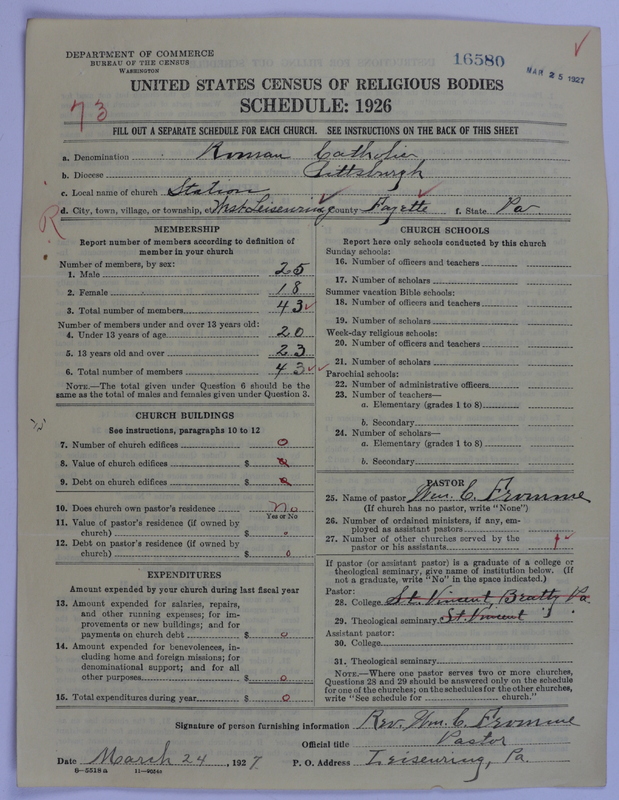 DEPARTMENT OF COMMERCE
BUREAU OF THE CENSUS
WASHINGTON
16580
MAR 25 1927
UNITED STATES CENSUS OF RELIGIOUS BODIES
SCHEDULE: 1926
73
FILL OUT A SEPARATE SCHEDULE FOR EACH CHURCH. SEE INSTRUCTIONS ON THE BACK OF THIS SHEET
a. Denomination Roman Catholic
b. Diocese Pittsburgh
c. Local name of church Station
R
d. City, town, village, or township, etc West Leisenring county Fayette f. State Pa
MEMBERSHIP
Report number of members according to definition of
member in your church
Number of members, by sex:
1. Male 25
2. Female 18
3. Total number of members 43
Number of members under and over 13 years old:
4. Under 13 years of age 20
5. 13 years old and over 23
6. Total number of members 43
NOTE.—The total given under Question 6 should be the
same as the total of males and females given under Question 3.
CHURCH BUILDINGS
See instructions, paragraphs 10 to 12
7. Number of church edifices 0
8. Value of church edifices $ 0
9. Debt on church edifices $ 0
10. Does church own pastor's residence No
Yes or No
11. Value of pastor's residence (if owned by
church) $ "
12. Debt on pastor's residence (if owned by
church) $ 0
EXPENDITURES
Amount expended by your church during last fiscal year
13. Amount expended for salaries, repairs,
and other running expenses; for im-
provements or new buildings; and for
payments on church debt $ 0
14. Amount expended for benevolences, in-
cluding home and foreign missions; for
denominational support; and for all
other purposes $ 0
15. Total expenditures during year $ 0
CHURCH SCHOOLS
Report here only schools conducted by this church
Sunday schools:
16. Number of officers and teachers
17. Number of scholars
Summer vacation Bible schools:
18. Number of officers and teachers
19. Number of scholars
Week-day religious schools:
20. Number of officers and teachers
21. Number of scholars
Parochial schools:
22. Number of administrative officers
23. Number of teachers—
a. Elementary (grades 1 to 8)
b. Secondary
24. Number of scholars—
a. Elementary (grades 1 to 8)
b. Secondary
PASTOR
25. Name of pastor Wm. C. Fromme
(If church has no pastor, write "None")
26. Number of ordained ministers, if any, em-
ployed as assistant pastors
27. Number of other churches served by the
pastor or his assistants 1
If pastor (or assistant pastor) is a graduate of a college or
theological seminary, give name of institution below. (If
not a graduate, write "No" in the space indicated.)
Pastor:
28. College St. Vincent Beatty Pa.
29. Theological seminary St. Vincent "
Assistant pastor:
30. College
31. Theological seminary
NOTE.—Where one pastor serves two or more churches,
Questions 28 and 29 should be answered only on the schedule
for one of the churches; on the schedules for the other churches,
write "See schedule for church."
Signature of person furnishing information Rev. Wm. C. Fromme
Official title Pastor
Date March 24, 1927. P. O. Address Leisenring, Pa.
6—5518a 11—9024a